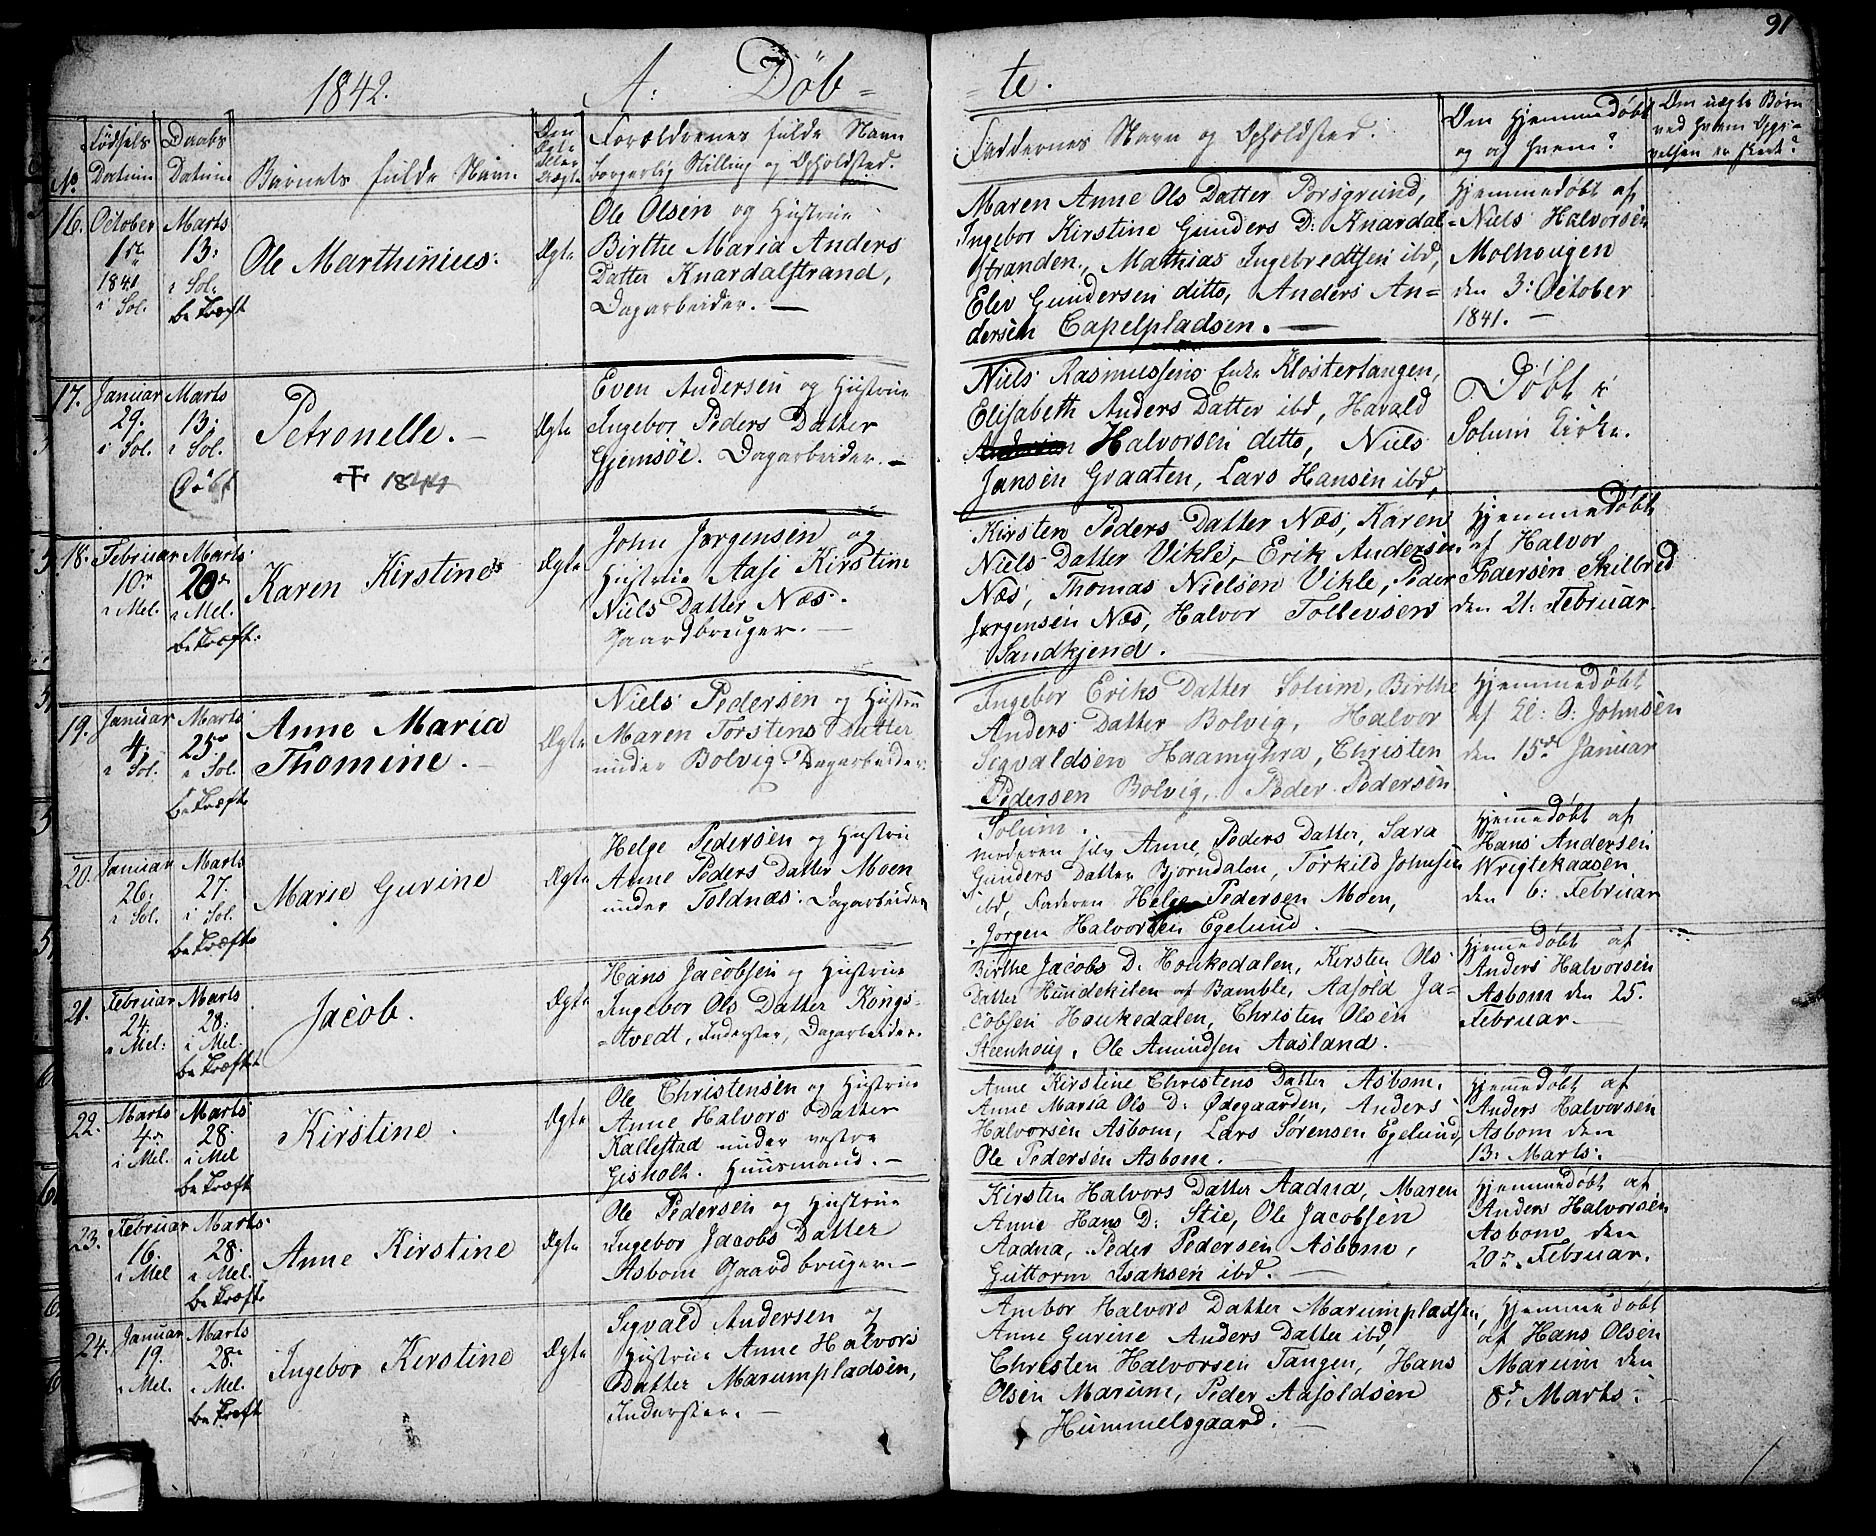 91
1842. A: Døb-
te.
No
Fødsels Datum
Daabs Datum
Barnets fulde Navn
Om Ægte Eller Uægte
Forældrenes fulde Navn
borgerlig Stilling og Opholdsted.
Faddernes Navn og Opholdsted.
Om Hjemmedøbt
og af hvem?
Om uægte Børn
ved hvem Opgi-
velsen er skeet?
16.
October
1ste
1841
i Sol.
Marts
13:
i Sol:
bekræft
Ole Marthinius.
Ægte
Ole Olsen og Hustrue
Birthe Maria Anders
Datter Knardalstrand,
Dagarbeider. —
Maren Anne Ols Datter Porsgrund,
Ingebor Kirstine Gunders D: Knardal-
stranden, Mathias Ingebredtsen ibd,
Elev Gundersen ditto, Anders An=
dersen Capelpladsen. —
Hjemmedøbt af
Niels Halvorsen
Molhougen
den 3: October
1841. —
17.
Januar
29.
i Sol.
Marts
13:
i Sol.
Døbt
Petronelle. —
+ 1844
Ægte
Even Andersen og Hustrue
Ingebor Peders Datter
Gjemsöe. Dagarbeider. —
Niels Rasmussens Enke Klostertangen,
Elisabeth Anders Datter ibd, Harald
Halvorsen ditto, Niels
Jansen Graaten, Lars Hansen ibd,
Døbt i
Solum Kirke.
18.
Februar
10de
i Mel.
Marts
20de
i Mel.
bekræft:
Karen Kirstine
Ægte
John Jørgensen og
Hustrue Aase Kirstine
Niels Datter Næs.
Gaardbruger. —
Kirsten Peders Datter Næs, Karen
Niels Datter Vikle, Erik Andersen
Næs, Thomas Nielsen Vikle, Peder
Jørgensen Næs, Halvor Tollevsen
Sandkjend.
Hjemmedøbt
af Halvor
Pedersen Skilbred
den 21: Februar.
19.
Januar
4:
i Sol.
Marts
25de
i Sol.
bekræft
Anne Maria
Thomine. —
Ægte
Niels Pedersen og Hustrue
Maren Torstens Datter
under Bolvig. Dagarbeider.
Ingebor Eriks Datter Solum, Birthe
Anders Datter Bolvig, Halvor
Sigvaldsen Haamyhra, Christen
Pedersen Bolvig, Peder Pedersen
Solum.
Hjemmedøbt
af El: O: Johnsen
den 15de Januar
20.
Januar
26:
i Sol.
Marts
27.
i Sol.
bekræft
Marie Gurine
Ægte
Helge Pedersen og Hustrue
Anne Peders Datter Moen
under Toldnæs. Dagarbeider
Moderen selv Anne Peders Datter, Sara
Gunders Datter Bjorndalen, Torkild Johnsen
ibd, Faderen Helge Pedersen Moen,
Jørgen Halvorsen Egelund.
Hjemmedøbt af
Hans Andersen
Wrigtekaasen
den 6: Februar
21.
Februar
24.
i Mel:
Marts
28:
i Mel.
bekræftet
Jacob.
Ægte
Hans Jacobsen og Hustrue
Ingebor Ols Datter Kongs-
tvedt, Inderster, Dagarbeider.
Birthe Jacobs D. Houkedalen, Kirsten Ols
Datter Hundekilen af Bamble, Aasold Ja=
cobsen Houkedalen, Christen Olsen
Steenhoug, Ole Amundsen Aasland.
Hjemmedøbt af
Anders Halvorsen
Asbom den 25.
Februar. —
22.
Marts
4de
i Mel.
Marts
28.
i Mel
bekræft
Kirstine.
Ægte
Ole Christensen og Hustrue
Anne Halvors Datter
Kallestad under vestre
Gisholt. Huusmand. —
Anne Kirstine Christens Datter Asbom.
Anne Maria Ols D: Ødegaarden, Anders
Halvorsen Asbom, Lars Sørensen Egelund,
Ole Pedersen Asbom. —
Hjemmedøbt af
Anders Halvorsen
Asbom den
13: Marts.
23.
Februar
16.
i Mel
Marts
28.
i Mel.
bekræft
Anne Kirstine
Ægte
Ole Pedersen og Hustrue
Ingebor Jacobs Datter
Asbom Gaardbruger. —
Kirsten Halvors Datter Aadna, Maren
Anne Hans D: Stie, Ole Jacobsen
Aadna, Peder Pedersen Asbom,
Guttorm Isaksen ibd. —
Hjemmedøbt af
Anders Halvorsen
Asbom den
20de Februar.
24.
Januar
19.
i Mel.
Marts
28de
i Mel.
bekræft
Ingebor Kirstine
Ægte
Sigvald Andersen og
Hustrue Anne Halvors
Datter Marumpladsen,
Inderster. —
Ambor Halvors Datter Marumpladsen,
Anne Gurine Anders Datter ibd,
Christen Halvorsen Tangen, Hans
Olsen Marum, Peder Aasoldsen
Hummelsgaard. —
Hjemmedøbt
af Hans Olsen
Marum den
8de Marts. —